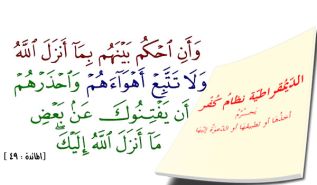 وَأَنِ ٱحْكُم بَيْنَهُم بِمَآ أَنزَلَ ٱللَّهُ
وَلَا تَتَّبِعْ أَهْوَآءَهُمْ وَٱحْذَرْهُمْ
أَن يَفْتِنُوكَ عَنۢ بَعْضِ
مَآ أَنزَلَ ٱللَّهُ إِلَيْكَ ۖ
[المائدة : ٤٩]
الدِّيمُقْرَاطِيَّة نِظَامُ كُفْر
يَحْرُمُ
أخذها أو تطبيقها أو الدَّعوَةُ إليها